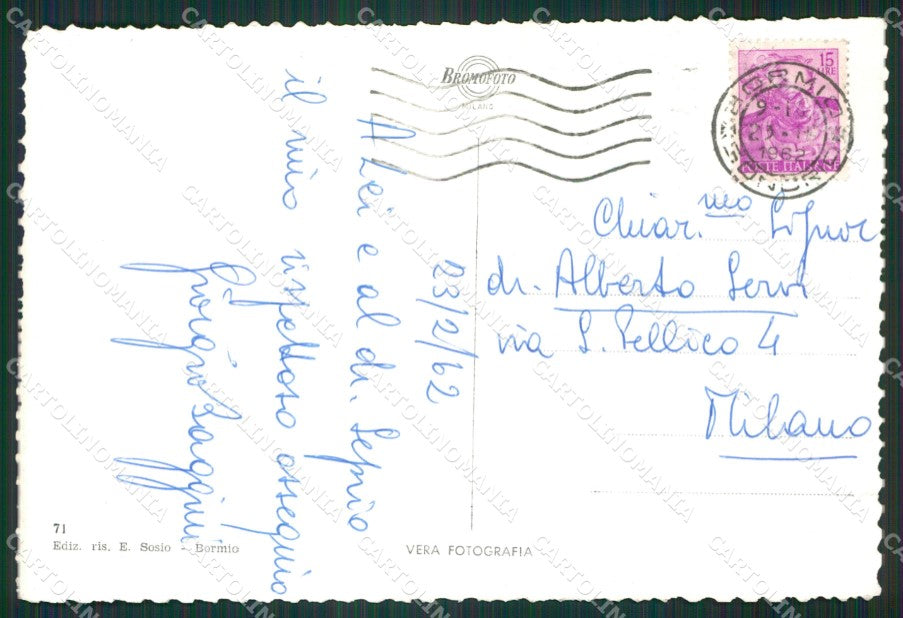 BROMOFOTO
MILANO
15
LIRE
POSTE ITALIANE
BORMIO
1962
SONDRIO
23/2/62
A Lei e al dr. Seprio
il mio rispettoso ossequio
Giorgio
Chiar.mo Signor
dr. Alberto Servi
via S. Pellico 4
Milano
71
Ediz. ris. E. Sosio - Bormio
VERA FOTOGRAFIA
CARTOLINOMANIA